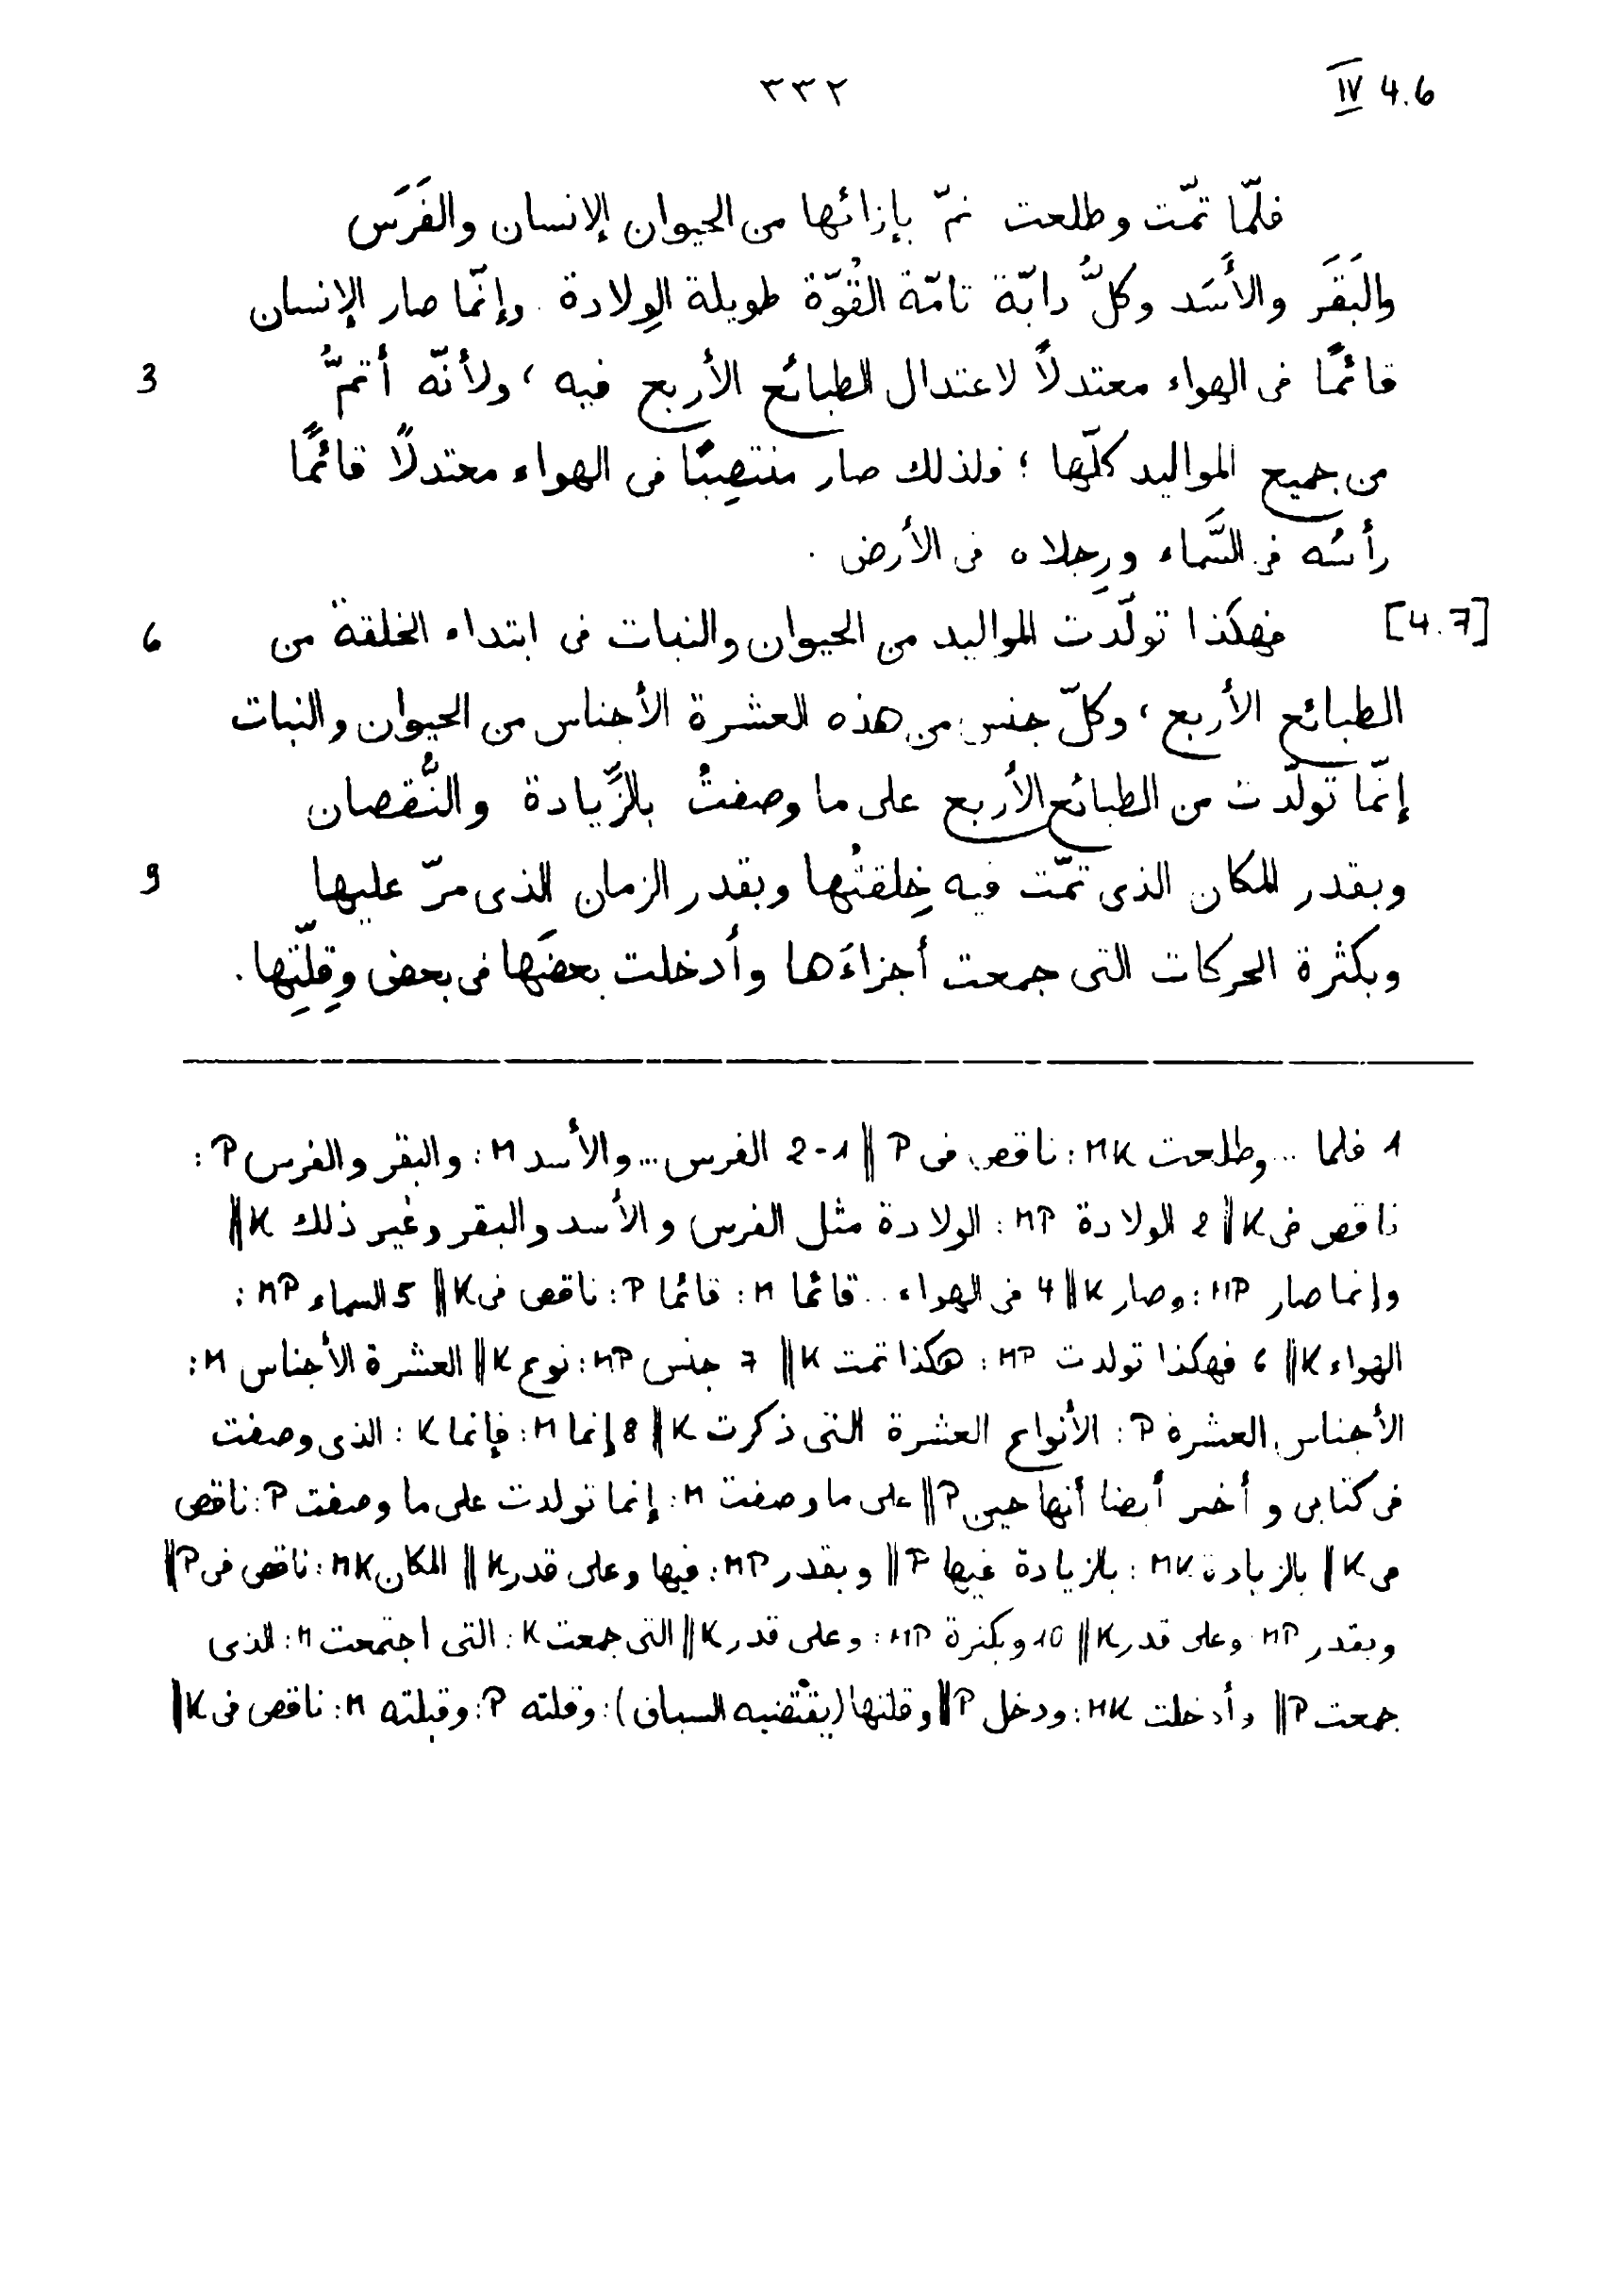 ٣٣٢ IV 4.6
فلمّا تمّت وطلعت تمّ بإزائها من الحيوان الإنسان والفَرَس
والبَقَر والأَسَد وكلُّ دابّة تامّة القُوّة طويلة الوِلادة . وإنّما صار الإنسان
قائمًا فى الهواء معتدلاً لاعتدال الطبائع الأربع فيه ، ولأنّه أتمُّ 3
من جميع المواليد كلّها ؛ فلذلك صار منتصِبًا فى الهواء معتدلاً قائمًا
رأسُه فى السَّماء ورِجلاه فى الأرض .
[4.7] فهكذا تولّدت المواليد من الحيوان والنبات فى ابتداء الخلقة من 6
الطبائع الأربع ، وكلّ جنس من هذه العشرة الأجناس من الحيوان والنبات
إنّما تولّدت من الطبائع الأربع على ما وصفتُ بالزِّيادة والنُّقصان
وبقدر المكان الذى تمّت فيه خِلقتُها وبقدر الزمان الذى مرّ عليها 9
وبكثرة الحركات التى جمعت أجزاءَها وأَدخلت بعضَها فى بعض وقِلّتِها .
1 فلما ... وطلعت MK : ناقص فى P || 1-2 الفرس ... والأسد M : والبقر والفرس P :
ناقص فى K || 2 الولادة MP : الولادة مثل الفرس والأسد والبقر وغير ذلك K ||
وإنما صار MP : وصار K || 4 فى الهواء ... قائما M : قائما P : ناقص فى K || 5 السماء MP :
الهواء K || 6 فهكذا تولدت MP : هكذا تمت K || 7 جنس MP : نوع K || العشرة الأجناس M :
الأجناس العشرة P : الأنواع العشرة التى ذكرت K || 8 إنما M : فإنما K : الذى وصفت
فى كتابى و أيضا أنها حين P || على ما وصفت M : إنما تولدت على ما وصفت P : ناقص
فى K || بالزيادة MK : بالزيادة فيها P || وبقدر MP : فيها وعلى قدر K || المكان MK : ناقص فى P ||
وبقدر MP : وعلى قدر K || 10 وبكثرة MP : وعلى قدر K || التى جمعت K : التى اجتمعت M : الذى
جمعت P || وأدخلت MK : ودخل P || وقلتها (يقتضيه السياق) : وقلته P : وقبلته M : ناقص فى K ||